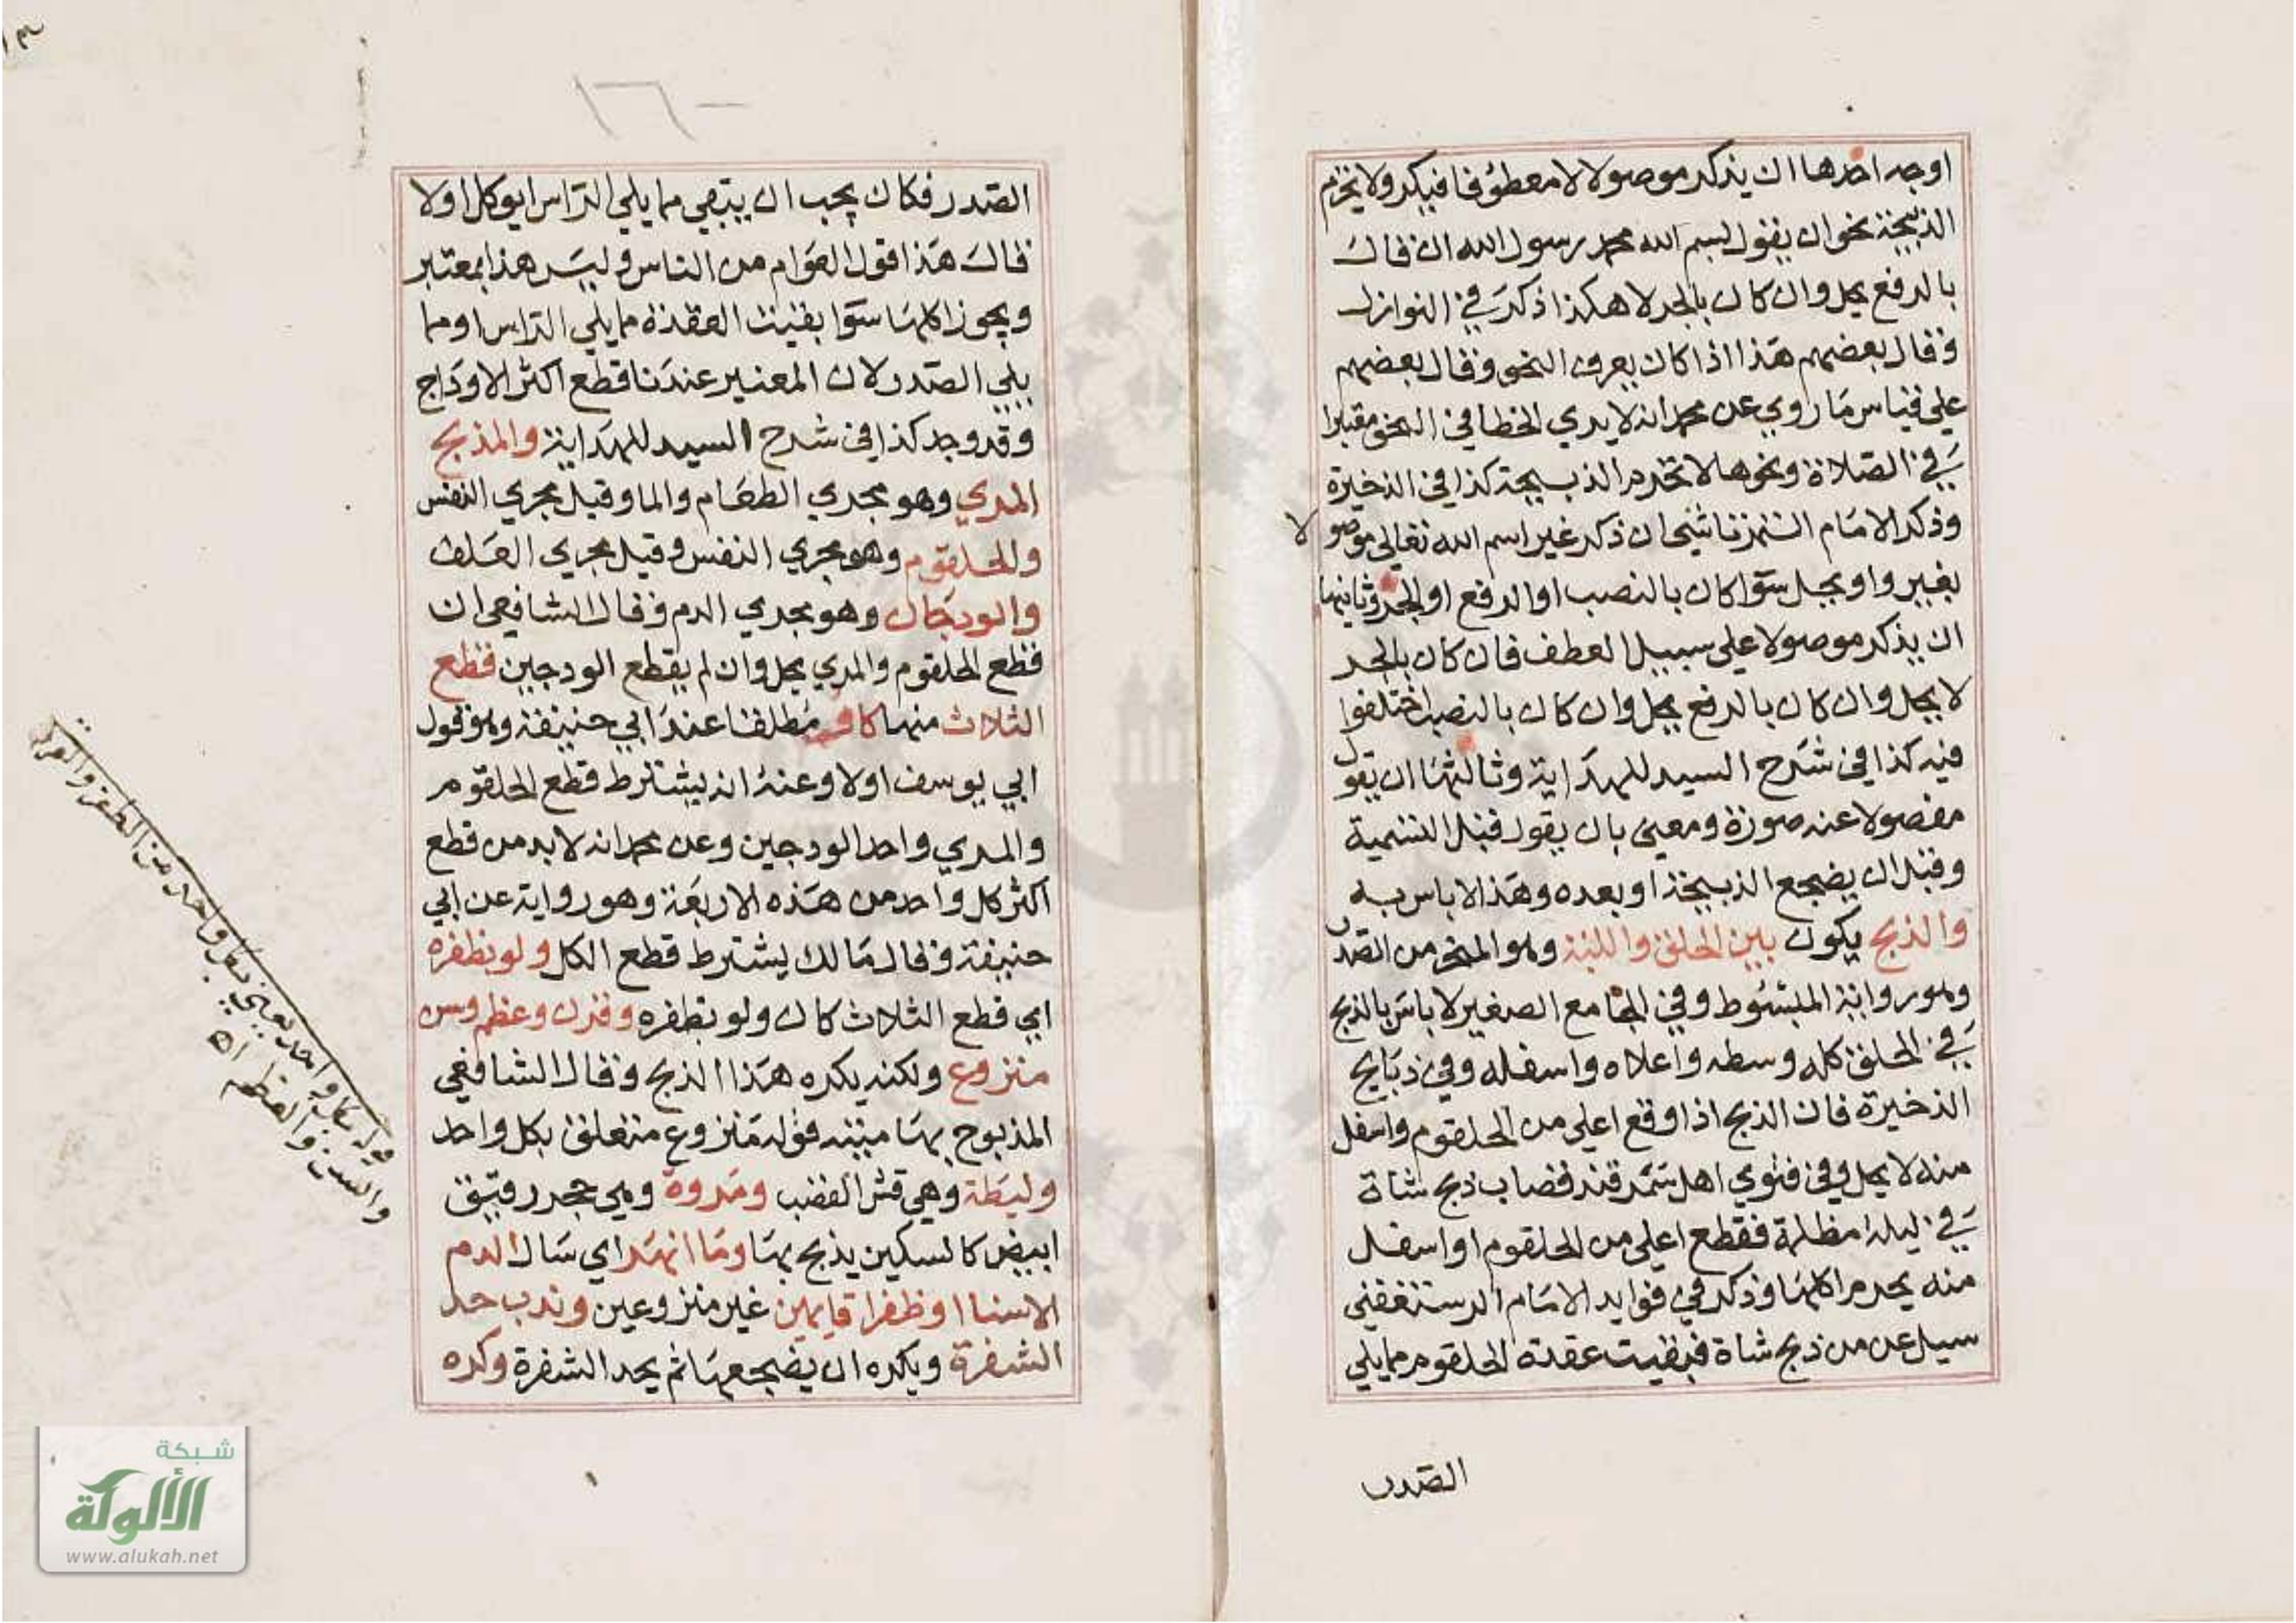 اوجه احدها ان يذكر موصولا لا معطوفا فيكره ولا يحرم
الذبيحة نحو ان يقول بسم الله محمد رسول الله ان قال
بالرفع يحل وان كان بالجر لا هكذا ذكر في النوازل
وقال بعضهم هذا اذا كان يعرف النحو وقال بعضهم
علي قياس ما روي عن محمد انه لا يري الخطا في النحو معتبرا
في الصلاة ونحوها لا تحرم الذبيحة كذا في الذخيرة
وذكر الامام التمرتاشي ان ذكر غير اسم الله تعالي موصولا
بغير واو يحل سوا كان بالنصب او الرفع او الجر وثانيها
ان يذكر موصولا علي سبيل العطف فان كان بالجر
لا يحل وان كان بالرفع يحل وان كان بالنصب اختلفوا
فيه كذا في شرح السيد للهداية وثالثها ان يقول
مفصولا عنه صورة ومعني بان يقول قبل التسمية
وقبل ان يضجع الذبيحة او بعده وهذا لا باس به
والذبح يكون بين الحلق واللبة وهو المنحر من الصدر
وهو رواية المبسوط وفي الجامع الصغير لا باس بالذبح
في الحلق كله وسطه واعلاه واسفله وفي ذبايح
الذخيرة فان الذبح اذا وقع اعلي من الحلقوم واسفل
منه لا يحل وفي فتوي اهل سمرقند قصاب ذبح شاة
في ليلة مظلمة فقطع اعلي من الحلقوم او اسفل
منه يحرم اكلها وذكر في فوايد الامام الرستغفني
سيل عن من ذبح شاة فبقيت عقدة الحلقوم مما يلي
الصدر
الصدر فكان يجب ان يبقي مما يلي الراس ايوكل او لا
قال هذا قول العوام من الناس وليس هذا بمعتبر
ويجوز اكلها سوا بقيت العقدة مما يلي الراس او مما
يلي الصدر لان المعتبر عندنا قطع اكثر الاوداج
وقد وجد كذا في شرح السيد للهداية والمذبح
المري وهو مجري الطعام والما وقيل مجري النفس
والحلقوم وهو مجري النفس وقيل مجري العلف
والودجان وهو مجري الدم وقال الشافعي ان
قطع الحلقوم والمري يحل وان لم يقطع الودجين فقطع
الثلاث منها كاف مطلقا عند ابي حنيفة وهو قول
ابي يوسف اولا وعنه انه يشترط قطع الحلقوم
والمري واحد الودجين وعن محمد انه لا بد من قطع
اكثر كل واحد من هذه الاربعة وهو رواية عن ابي
حنيفة وقال مالك يشترط قطع الكل ولو بظفره
اي قطع الثلاث كان ولو بظفره وقرن وعظم وسن
منزوع ولكنه يكره هذا الذبح وقال الشافعي
المذبوح بها ميتة قوله منزوع متعلق بكل واحد
وليطة وهي قشر القصب ومروة وهي حجر رقيق
ابيض كالسكين يذبح بها وما انهر اي سال الدم
الا سنا او ظفرا قايمين غير منزوعين وندب حد
الشفرة ويكره ان يضجعها ثم يحد الشفرة وكره
قوله بكل واحد يعني بكل واحد من الظفر والقرن
والسن والعظم اه
شبكة
الألوكة
www.alukah.net